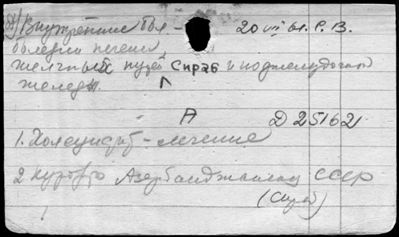 А) Внутренние бол- 20 VII 61. Р. В.
болезни печени
желчных путей Справ и поджелудочной
желез.
А Д 25162
1. Холецистит - лечение
2 курорто Азербайджанская СССР
(Справ)